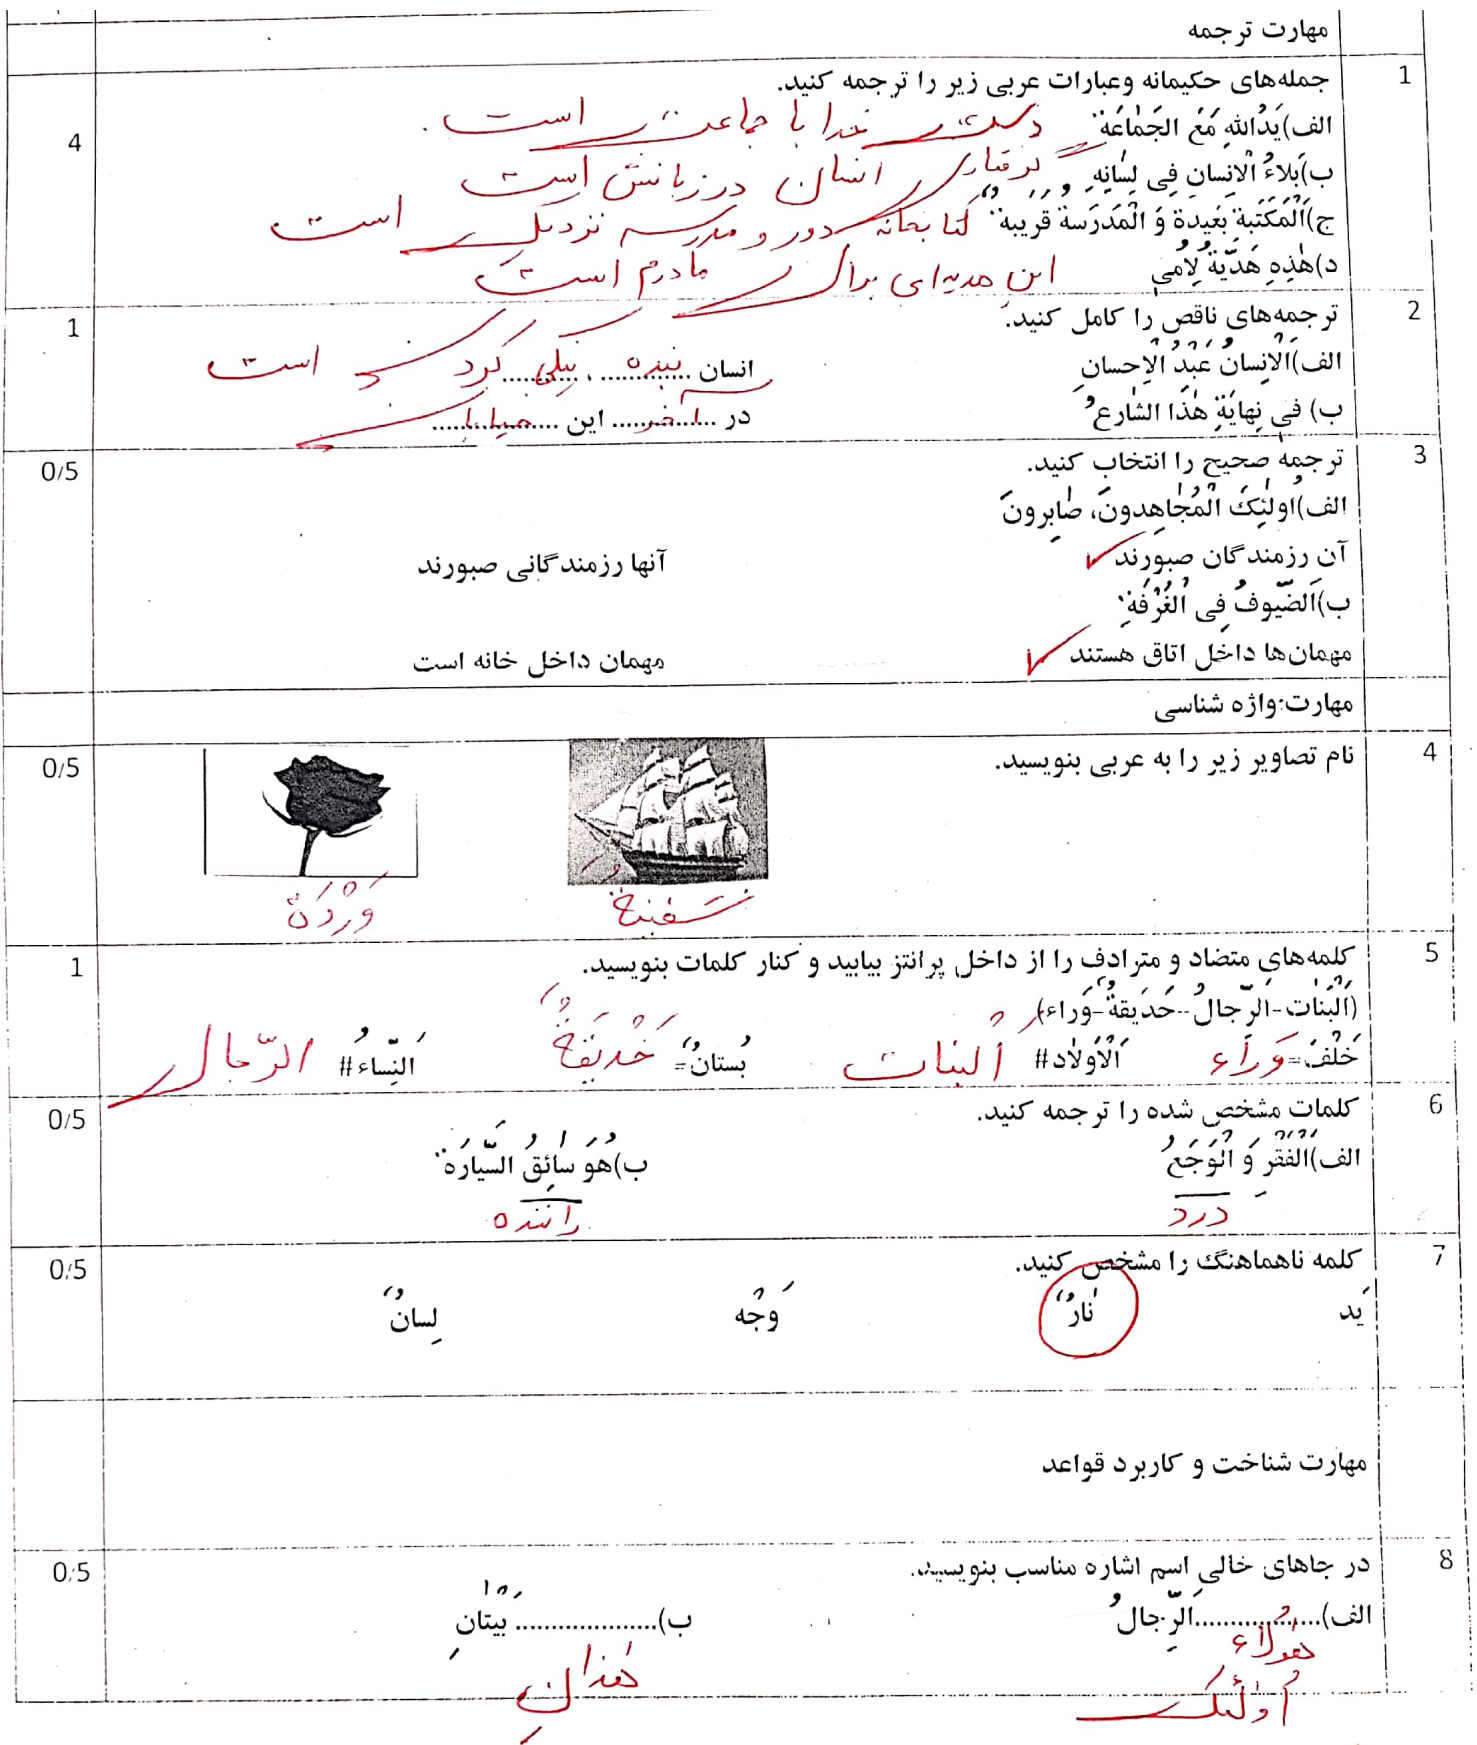 مهارت ترجمه
1 جمله‌های حکیمانه وعبارات عربی زیر را ترجمه کنید. 4
الف)یَدُاللهِ مَعَ الجَماعَة دست خدا با جماعت است.
ب)بَلاءُ الْاِنسانِ فِی لِسانِهِ گرفتاری انسان در زبانش است
ج)اَلْمَکتَبة بَعیدة وَ الْمَدرَسة قَریبة کتابخانه دور و مدرسه نزدیک است
د)هٰذِهِ هَدّیَةٌ لِاُمی این هدیه‌ای برای مادرم است
2 ترجمه‌های ناقص را کامل کنید. 1
الف)اَلْاِنسانُ عَبْدُ الْاِحسانِ انسان بنده ، نیکی کردن است
ب) فی نِهایَةِ هٰذَا الشّارِع در آخر این خیابان
3 ترجمه صحیح را انتخاب کنید. 0/5
الف)اُولٰئِکَ الْمُجٰاهِدونَ، صٰابِرونَ
آن رزمندگان صبورند ✓ آنها رزمندگانی صبورند
ب)اَلضّیوفُ فِی الْغُرْفَةِ
مهمان‌ها داخل اتاق هستند ✓ مهمان داخل خانه است
مهارت:واژه شناسی
4 نام تصاویر زیر را به عربی بنویسید. 0/5
سَفینةٌ وَرْدَة
5 کلمه‌های متضاد و مترادف را از داخل پرانتز بیابید و کنار کلمات بنویسید. 1
(اَلْبَنٰات-اَلرِّجالُ-حَدیقةٌ-وَراء)
خَلْفَ= وَراء اَلْاَولاد# اَلْبنات بُستانٌ= حَدیقةٌ اَلنِّساءُ# الرّجال
6 کلمات مشخص شده را ترجمه کنید. 0/5
الف)اَلْفَقْرُ وَ الْوَجَعُ ب)هُوَ سٰائِقُ السَّیارَة
درد راننده
7 کلمه ناهماهنگ را مشخص کنید. 0/5
یَد نارٌ وَجْه لِسانٌ
مهارت شناخت و کاربرد قواعد
8 در جاهای خالی اسم اشاره مناسب بنویسید. 0/5
الف)....................اَلرِّجالُ ب).................... بَیْتانِ
هٰؤُلاء هٰذانِ
اُولٰئِک